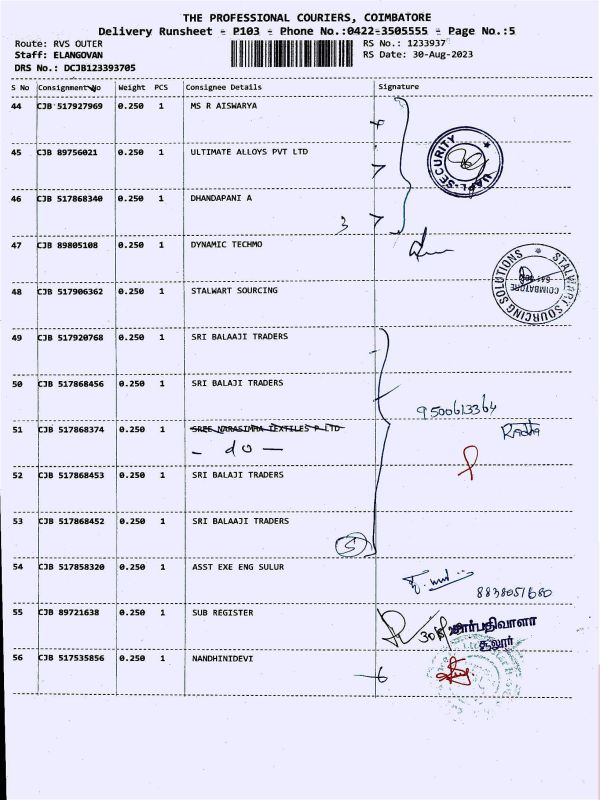 THE PROFESSIONAL COURIERS, COIMBATORE
Delivery Runsheet - P103 - Phone No.:0422-3505555 - Page No.:5
Route: RVS OUTER
RS No.: 1233937
Staff: ELANGOVAN
RS Date: 30-Aug-2023
DRS No.: DCJB123393705
S No Consignment No Weight PCS Consignee Details Signature
44 CJB 517927969 0.250 1 MS R AISWARYA
45 CJB 89756021 0.250 1 ULTIMATE ALLOYS PVT LTD
UAPL-SECURITY
46 CJB 517868340 0.250 1 DHANDAPANI A
3
47 CJB 89805108 0.250 1 DYNAMIC TECHMO
48 CJB 517906362 0.250 1 STALWART SOURCING
STALWART SOURCING SOLUTIONS
COIMBATORE
49 CJB 517920768 0.250 1 SRI BALAAJI TRADERS
50 CJB 517868456 0.250 1 SRI BALAJI TRADERS
9500613364
51 CJB 517868374 0.250 1 SREE NARASIMHA TEXTILES P LTD
Radha
- do -
52 CJB 517868453 0.250 1 SRI BALAJI TRADERS
53 CJB 517868452 0.250 1 SRI BALAAJI TRADERS
5
54 CJB 517858320 0.250 1 ASST EXE ENG SULUR
8838051680
55 CJB 89721638 0.250 1 SUB REGISTER
சார்பதிவாளர்
சூலூர்
56 CJB 517535856 0.250 1 NANDHINIDEVI